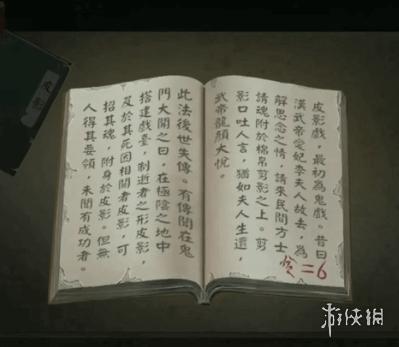 皮影戲，最初為鬼戲。昔日
漢武帝愛妃李夫人故去，為
解思念之情，請來民間方士
請魂附於棉帛剪影之上。剪
影口吐人言，猶如夫人生還，
武帝龍顏大悅。
=6
此法後世失傳。有傳聞在鬼
門大開之日，在極陰之地中
搭建戲臺，制逝者之形皮影，
及於其死因相關者皮影，可
招其魂，附身於皮影。但無
人得其要領，未聞有成功者。
皮影
游俠網